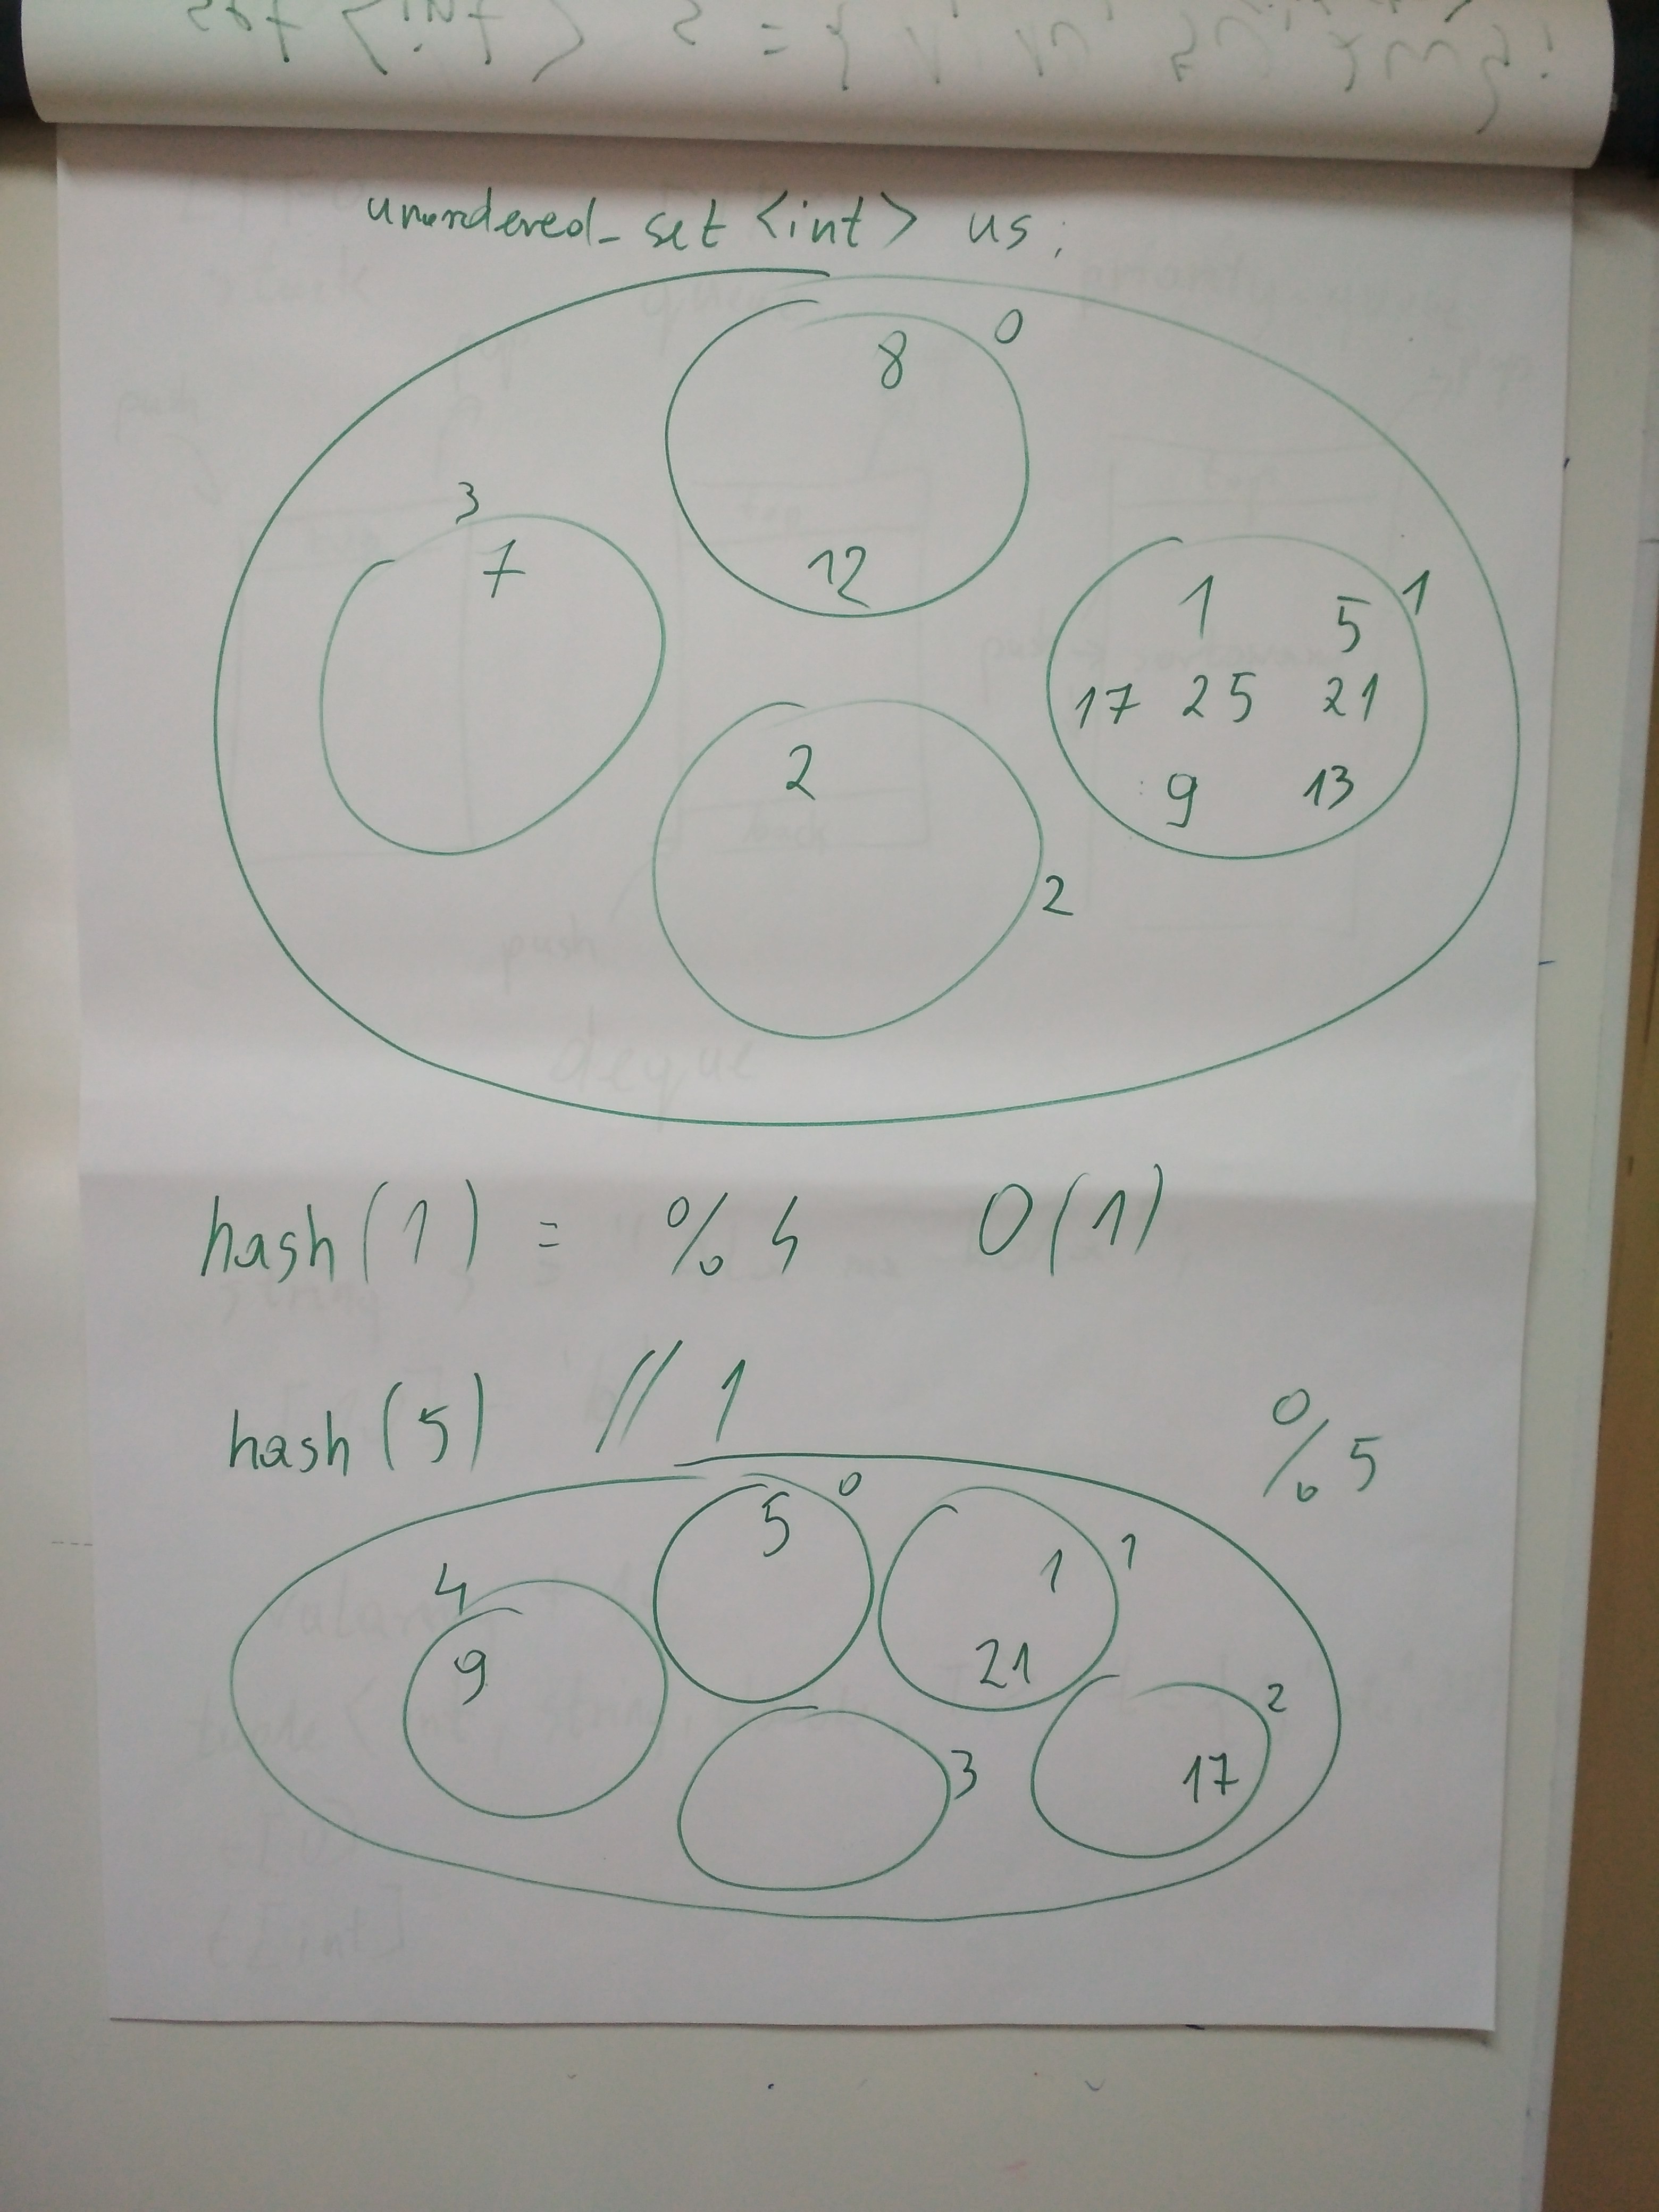 unordered_set <int> us;
0
8
12
3
7
1
1 5
17 25 21
9 13
2
2
hash(1) = % 4 O(1)
hash(5) // 1
% 5
0
5
1
1
21
4
9
2
17
3